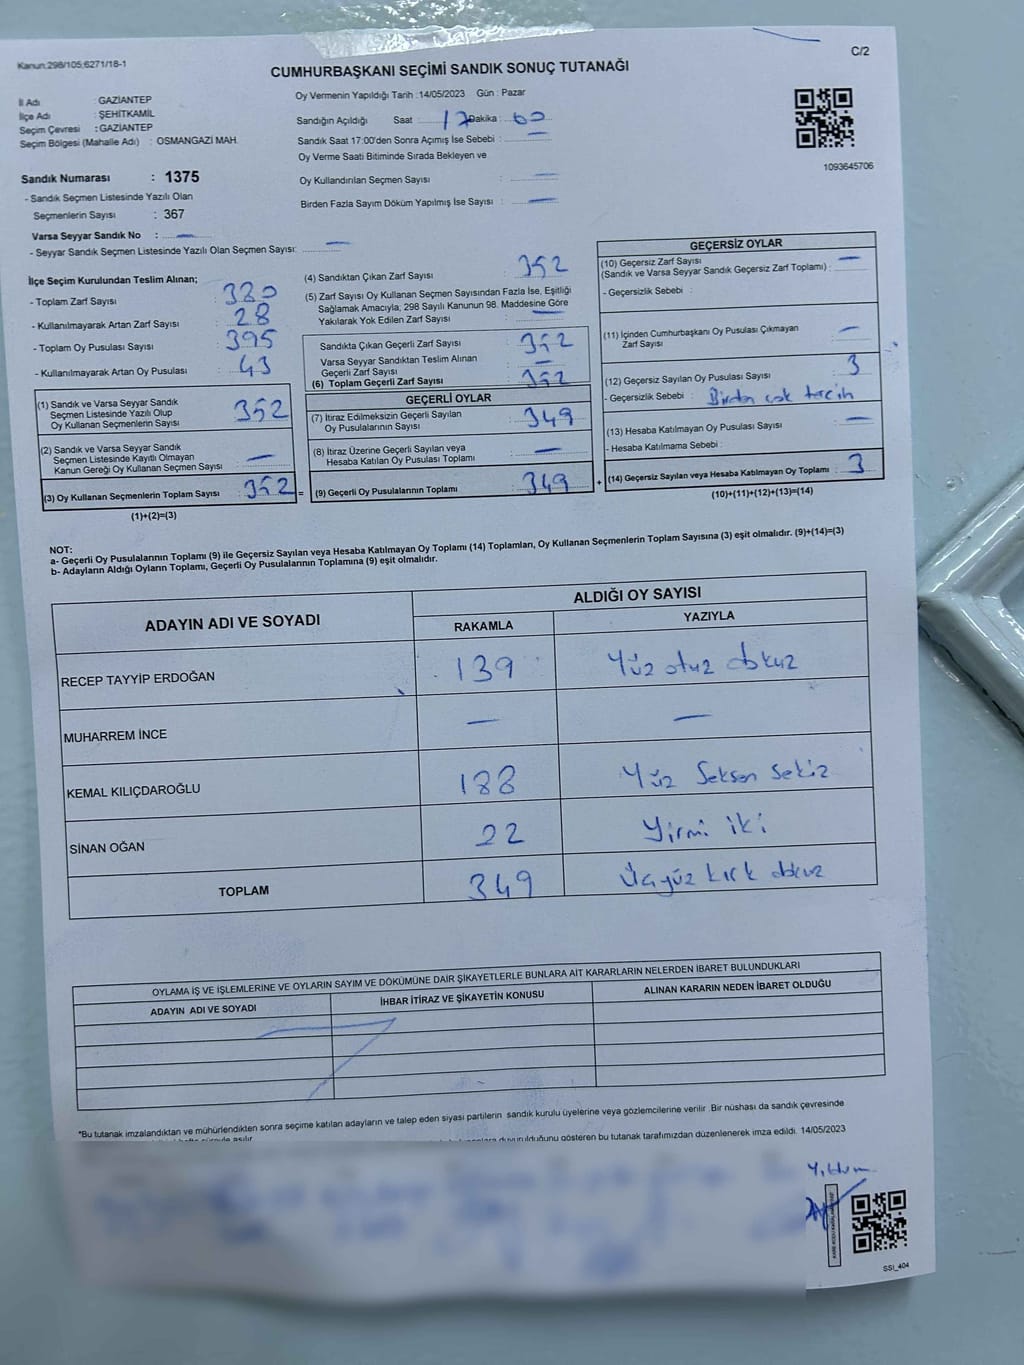 Kanun:298/105;6271/18-1
C/2
CUMHURBAŞKANI SEÇİMİ SANDIK SONUÇ TUTANAĞI
İl Adı : GAZİANTEP
İlçe Adı : ŞEHİTKAMİL
Seçim Çevresi : GAZİANTEP
Seçim Bölgesi (Mahalle Adı) : OSMANGAZİ MAH.
Sandık Numarası : 1375
- Sandık Seçmen Listesinde Yazılı Olan
Seçmenlerin Sayısı : 367
Varsa Seyyar Sandık No : —
- Seyyar Sandık Seçmen Listesinde Yazılı Olan Seçmen Sayısı: —
Oy Vermenin Yapıldığı Tarih :14/05/2023 Gün : Pazar
Sandığın Açıldığı Saat : 17 Dakika :
Sandık Saat 17:00'den Sonra Açımış İse Sebebi : —
Oy Verme Saati Bitiminde Sırada Bekleyen ve
Oy Kullandırılan Seçmen Sayısı : —
Birden Fazla Sayım Döküm Yapılmış İse Sayısı : —
1093645706
İlçe Seçim Kurulundan Teslim Alınan;
- Toplam Zarf Sayısı : 380
- Kullanılmayarak Artan Zarf Sayısı : 28
- Toplam Oy Pusulası Sayısı : 395
- Kullanılmayarak Artan Oy Pusulası : 43
(1) Sandık ve Varsa Seyyar Sandık
Seçmen Listesinde Yazılı Olup
Oy Kullanan Seçmenlerin Sayısı : 352
(2) Sandık ve Varsa Seyyar Sandık
Seçmen Listesinde Kayıtlı Olmayan
Kanun Gereği Oy Kullanan Seçmen Sayısı : —
(3) Oy Kullanan Seçmenlerin Toplam Sayısı : 352 =
(1)+(2)=(3)
(4) Sandıktan Çıkan Zarf Sayısı : 352
(5) Zarf Sayısı Oy Kullanan Seçmen Sayısından Fazla İse, Eşitliği
Sağlamak Amacıyla; 298 Sayılı Kanunun 98. Maddesine Göre
Yakılarak Yok Edilen Zarf Sayısı : —
Sandıkta Çıkan Geçerli Zarf Sayısı : 352
Varsa Seyyar Sandıktan Teslim Alınan
Geçerli Zarf Sayısı : —
(6) Toplam Geçerli Zarf Sayısı : 352
GEÇERLİ OYLAR
(7) İtiraz Edilmeksizin Geçerli Sayılan
Oy Pusulalarının Sayısı : 349
(8) İtiraz Üzerine Geçerli Sayılan veya
Hesaba Katılan Oy Pusulası Toplamı : —
(9) Geçerli Oy Pusulalarının Toplamı : 349 +
GEÇERSİZ OYLAR
(10) Geçersiz Zarf Sayısı
(Sandık ve Varsa Seyyar Sandık Geçersiz Zarf Toplamı) : —
- Geçersizlik Sebebi :
(11) İçinden Cumhurbaşkanı Oy Pusulası Çıkmayan
Zarf Sayısı : —
(12) Geçersiz Sayılan Oy Pusulası Sayısı : 3
- Geçersizlik Sebebi : Birden çok tercih
(13) Hesaba Katılmayan Oy Pusulası Sayısı : —
- Hesaba Katılmama Sebebi :
(14) Geçersiz Sayılan veya Hesaba Katılmayan Oy Toplamı : 3
(10)+(11)+(12)+(13)=(14)
NOT:
a- Geçerli Oy Pusulalarının Toplamı (9) ile Geçersiz Sayılan veya Hesaba Katılmayan Oy Toplamı (14) Toplamları, Oy Kullanan Seçmenlerin Toplam Sayısına (3) eşit olmalıdır. (9)+(14)=(3)
b- Adayların Aldığı Oyların Toplamı, Geçerli Oy Pusulalarının Toplamına (9) eşit olmalıdır.
ADAYIN ADI VE SOYADI
ALDIĞI OY SAYISI
RAKAMLA YAZIYLA
RECEP TAYYİP ERDOĞAN 139 Yüz otuz dokuz
MUHARREM İNCE — —
KEMAL KILIÇDAROĞLU 188 Yüz Seksen Sekiz
SİNAN OĞAN 22 Yirmi iki
TOPLAM 349 Üçyüz kırk dokuz
OYLAMA İŞ VE İŞLEMLERİNE VE OYLARIN SAYIM VE DÖKÜMÜNE DAİR ŞİKAYETLERLE BUNLARA AİT KARARLARIN NELERDEN İBARET BULUNDUKLARI
ADAYIN ADI VE SOYADI İHBAR İTİRAZ VE ŞİKAYETİN KONUSU ALINAN KARARIN NEDEN İBARET OLDUĞU
*Bu tutanak imzalandıktan ve mühürlendikten sonra seçime katılan adayların ve talep eden siyasi partilerin sandık kurulu üyelerine veya gözlemcilerine verilir. Bir nüshası da sandık çevresinde
duyurulduğunu gösteren bu tutanak tarafımızdan düzenlenerek imza edildi. 14/05/2023
SSI_404